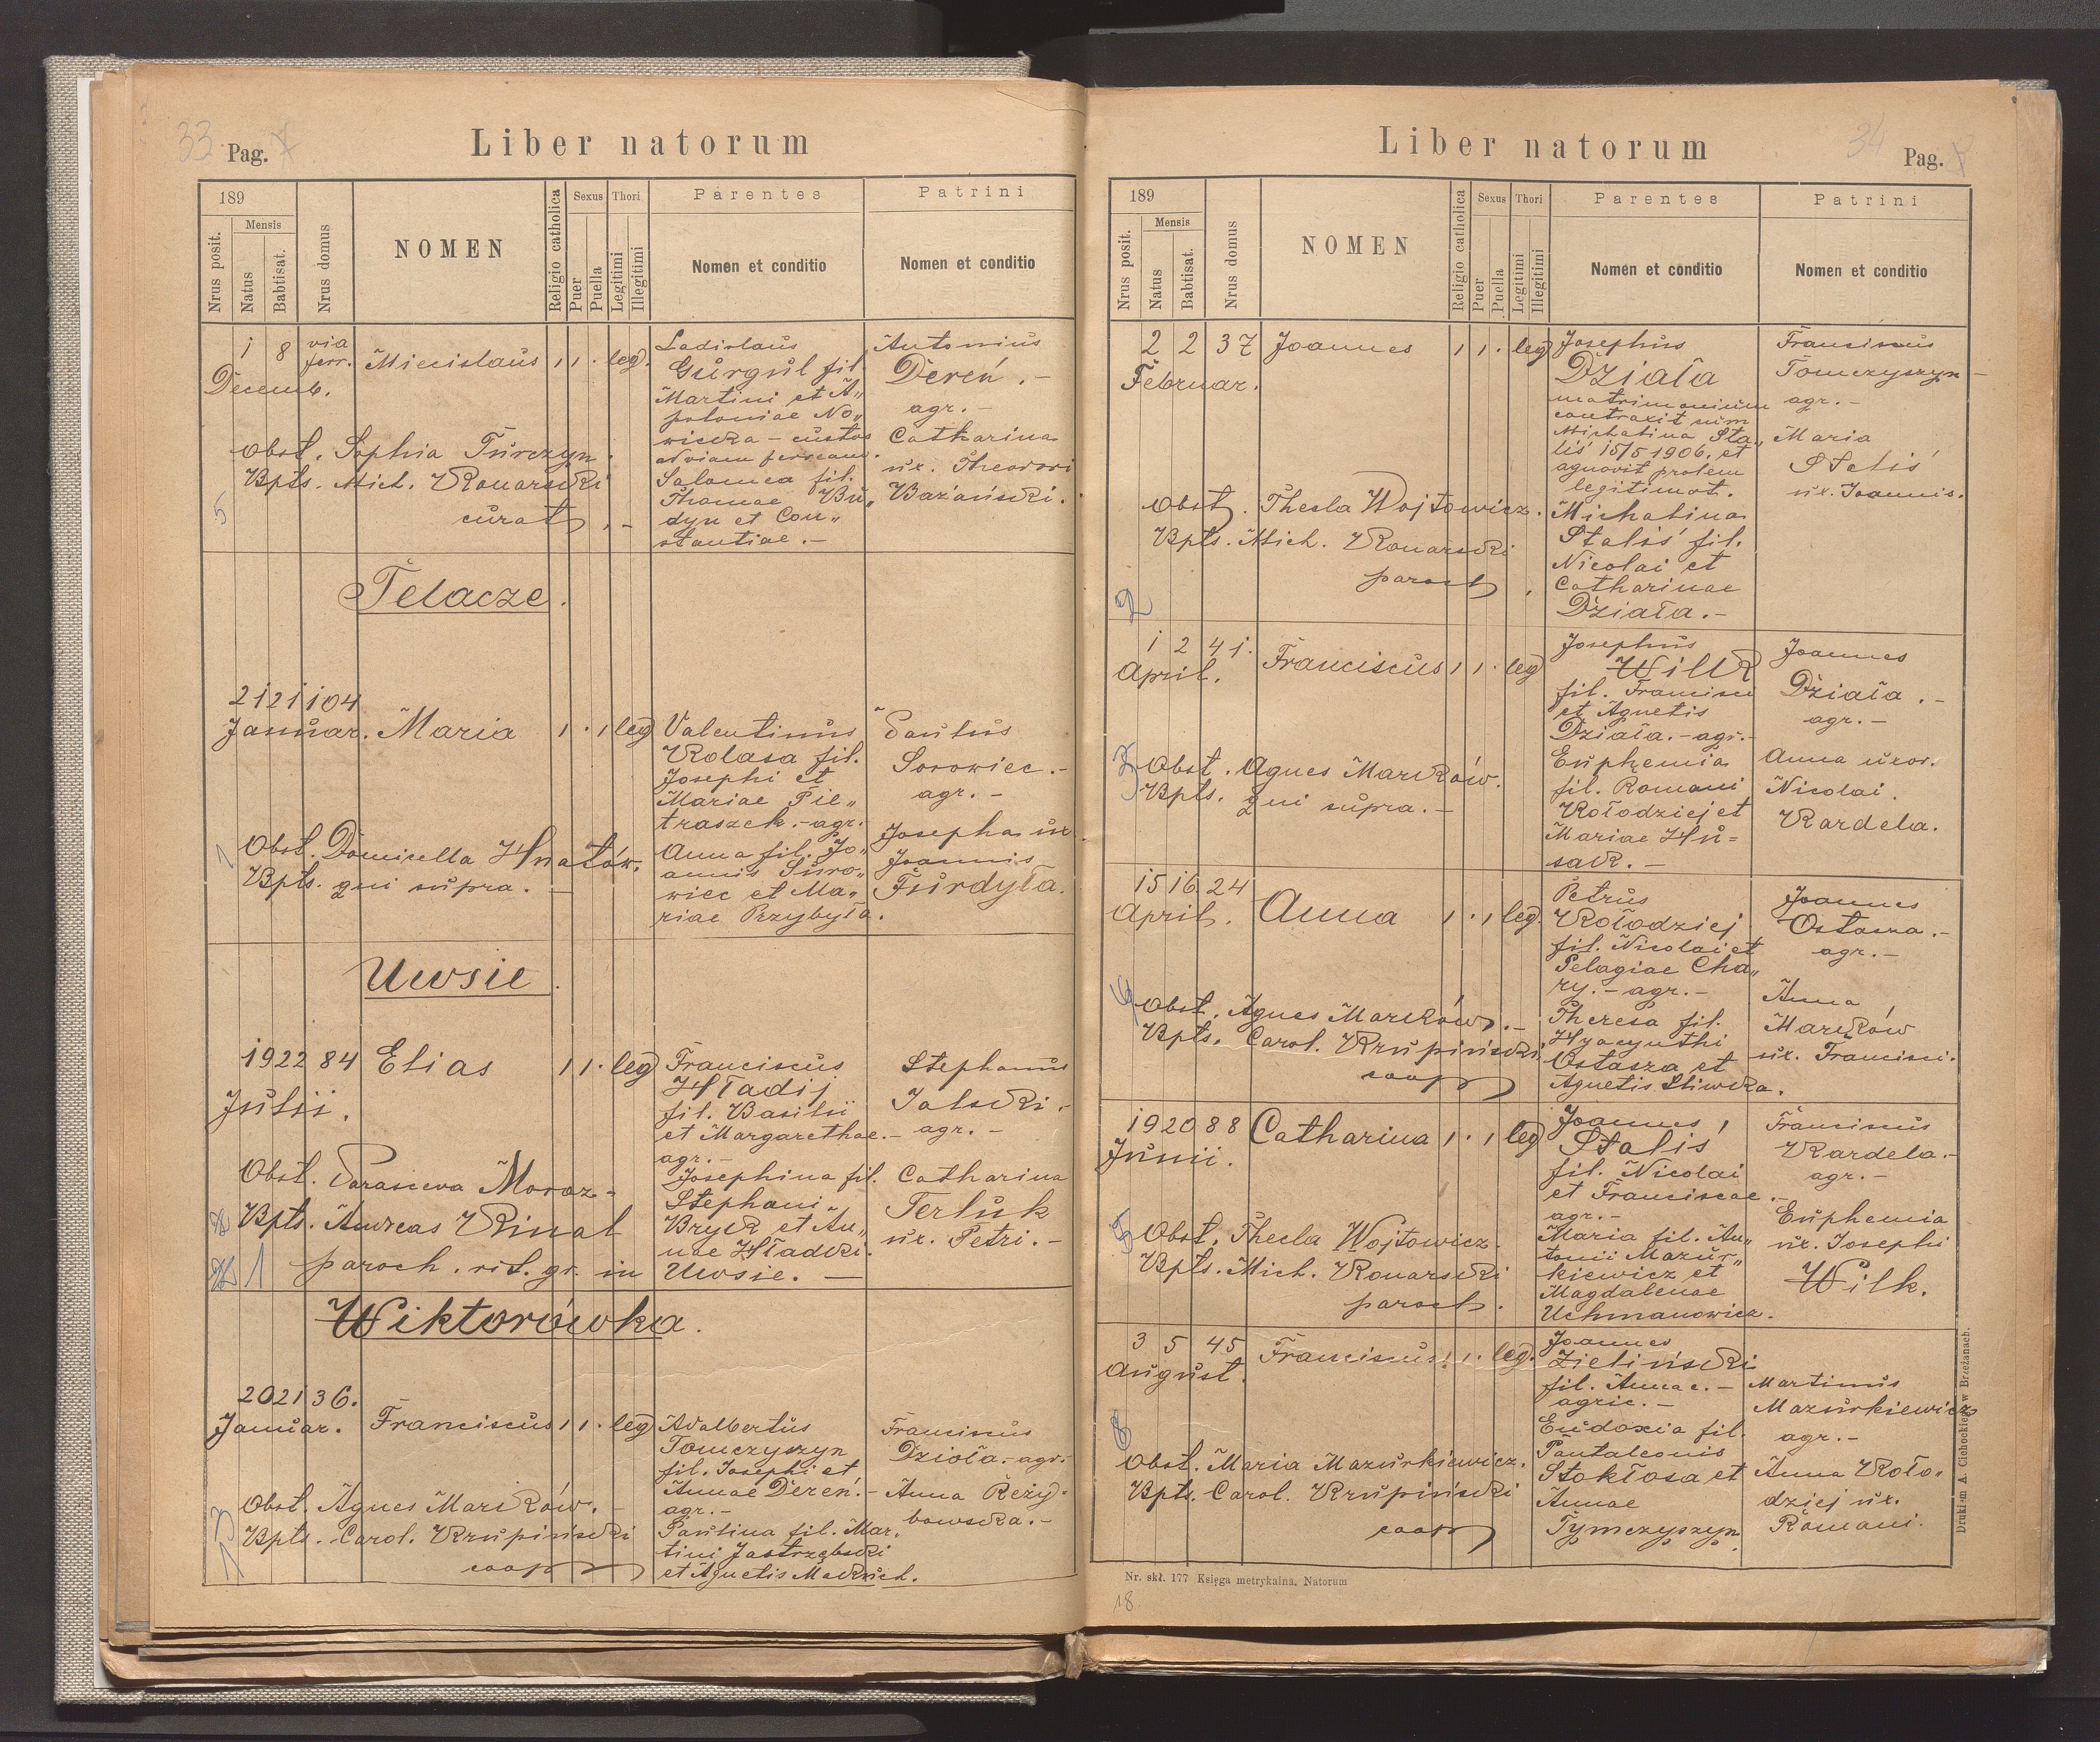 33 Pag.
Liber natorum
189
Nrus posit.
Mensis
Natus
Babtisat.
Nrus domus
NOMEN
Religio catholica
Sexus
Puer
Puella
Thori
Legitimi
Illegitimi
Parentes
Nomen et conditio
Patrini
Nomen et conditio
1 8 via ferr. Miecislaus 1 1 . leg.
Decemb.
Obst. Sophia Turczyn.
Bpts. Mich. Konarski
curat.
5
Ladislaus
Gurgul fil.
Martini et A„
poloniae No„
wicka - custos
viam ferream.
Salomea fil.
Thomae Bu„
dyn et Con„
stantiae.-
Antonius
Dereń.-
agr.-
Catharina
ux. Theodori
Bażański.
Telacze.
21 21 104
Januar. Maria 1 . 1 leg
1 Obst. Domicella Hnatów.
Bpts. qui supra.-
Valentinus
Kolasa fil.
Josephi et
Mariae Pie„
traszek.-agr.-
Anna fil. Jo„
annis Suro„
wiec et Ma„
riae Przybyła.
Paulus
Sorowiec.-
agr.-
Josepha ux
Joannis
Furdyła.
Uwsie.
19 22 84 Elias 1 1 . leg
Julii.
Obst. Parascewa Moroz-
Bpts. Andreas Kinal
1 paroch. rit. gr. in
Franciscus
Hładij
fil. Basilii
et Margarethae.-
agr.-
Josephina fil.
Stephani
Bryk et An„
nae Hładki.
Uwsie.-
Stephanus
Jalski.-
agr.-
Catharina
Terluk
ux. Petri.-
Wiktorówka.
20 21 36.
Januar. Franciscus 1 1 . leg
Obst. Agnes Marków.-
Bpts. Carol. Krupiński
coop
1
Adalbertus
Tomczyszyn
fil. Josephi et
Annae Dereń.-
agr.-
Paulina fil. Mar„
tini Jastrzębski
et Agnetis Maksich.
Franciscus
Dzioła.-agr.-
Anna Reży-
bowska.-
Liber natorum
34 Pag.
189
Nrus posit.
Mensis
Natus
Babtisat.
Nrus domus
NOMEN
Religio catholica
Sexus
Puer
Puella
Thori
Legitimi
Illegitimi
Parentes
Nomen et conditio
Patrini
Nomen et conditio
2 2 37 Joannes 1 1 . leg
Februar.
Obst. Thecla Wojtowicz.
Bpts. Mich. Konarski
paroch.
2
Josephus
Działa
matrimonium
contraxit cum
Michalina Sta„
liś 15/5 1906, et
agnovit prolem
legitimat.
Michalina
Staliś fil.
Nicolai et
Catharinae
Działa.-
Franciscus
Tomczyszyn-
agr.-
Maria
Staliś
ux. Joannis.
1 2 41. Franciscus 1 1 . leg
April.
3 Obst. Agnes Marków.
Bpts. qui supra.-
Josephus
Wilk
fil. Francisci
et Agnetis
Działa.-agr.-
Euphemia
fil. Romani
Kołodziej et
Mariae Hu=
sak.-
Joannes
Działa.-
agr.-
Anna uxor.
Nicolai.
Kardela.
15 16 24
April. Anna 1 . 1 leg.
4 Obst. Agnes Marków.-
Bpts. Carol. Krupiński
coop
Petrus
Kołodziej
fil. Nicolai et
Pelagiae Cha„
ry.-agr.-
Theresa fil.
Hyacynthi
Ostasza et
Agnetis Śliwka.
Joannes
Ostasza.-
agr.-
Anna
Marków
ux. Francisci.
19 20 88 Catharina 1 . 1 leg
Junii.
5 Obst. Thecla Wojtowicz.
Bpts. Mich. Konarski
paroch.
Joannes
Staliś
fil. Nicolai
et Franciscae.-
agr.-
Maria fil. An„
tonii Mazur„
kiewicz et
Magdalenae
Uchmanowicz.
Franciscus
Kardela.-
agr.-
Euphemia
ux. Josephi
Wilk.
3 5 45 Franciscus 1 1 . leg.
August.
6
Obst. Maria Mazurkiewicz.
Bpts. Carol. Krupiński
coop
Joannes
Zieliński
fil. Annae.-
agric.-
Eudoxia fil.
Pantaleonis
Stokłosa et
Annae
Tymczyszyn.
Martinus
Mazurkiewicz
agr.-
Anna Koło„
dziej ux.
Romani.
Nr. skł. 177 Księga metrykalna, Natorum
Drukiem A. Cichockiego w Brzeżanach.
18